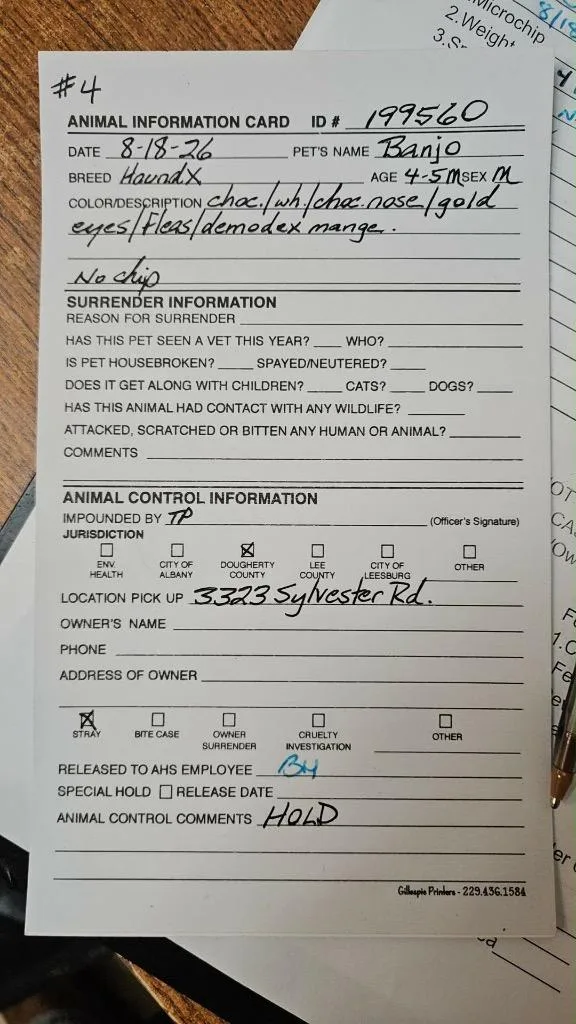 #4
ANIMAL INFORMATION CARD ID # 199560
DATE 8-18-26 PET'S NAME Banjo
BREED HoundX AGE 4-5M SEX M
COLOR/DESCRIPTION choc./wh/choc.nose/gold
eyes/Fleas/demodex mange.
No chip
SURRENDER INFORMATION
REASON FOR SURRENDER
HAS THIS PET SEEN A VET THIS YEAR? WHO?
IS PET HOUSEBROKEN? SPAYED/NEUTERED?
DOES IT GET ALONG WITH CHILDREN? CATS? DOGS?
HAS THIS ANIMAL HAD CONTACT WITH ANY WILDLIFE?
ATTACKED, SCRATCHED OR BITTEN ANY HUMAN OR ANIMAL?
COMMENTS
ANIMAL CONTROL INFORMATION
IMPOUNDED BY TP (Officer's Signature)
JURISDICTION
ENV. HEALTH CITY OF ALBANY DOUGHERTY COUNTY LEE COUNTY CITY OF LEESBURG OTHER
LOCATION PICK UP 3323 Sylvester Rd.
OWNER'S NAME
PHONE
ADDRESS OF OWNER
STRAY BITE CASE OWNER SURRENDER CRUELTY INVESTIGATION OTHER
RELEASED TO AHS EMPLOYEE BH
SPECIAL HOLD RELEASE DATE
ANIMAL CONTROL COMMENTS HOLD
Gillespie Printers - 229.436.1584
Microchip
2.Weight
8/18